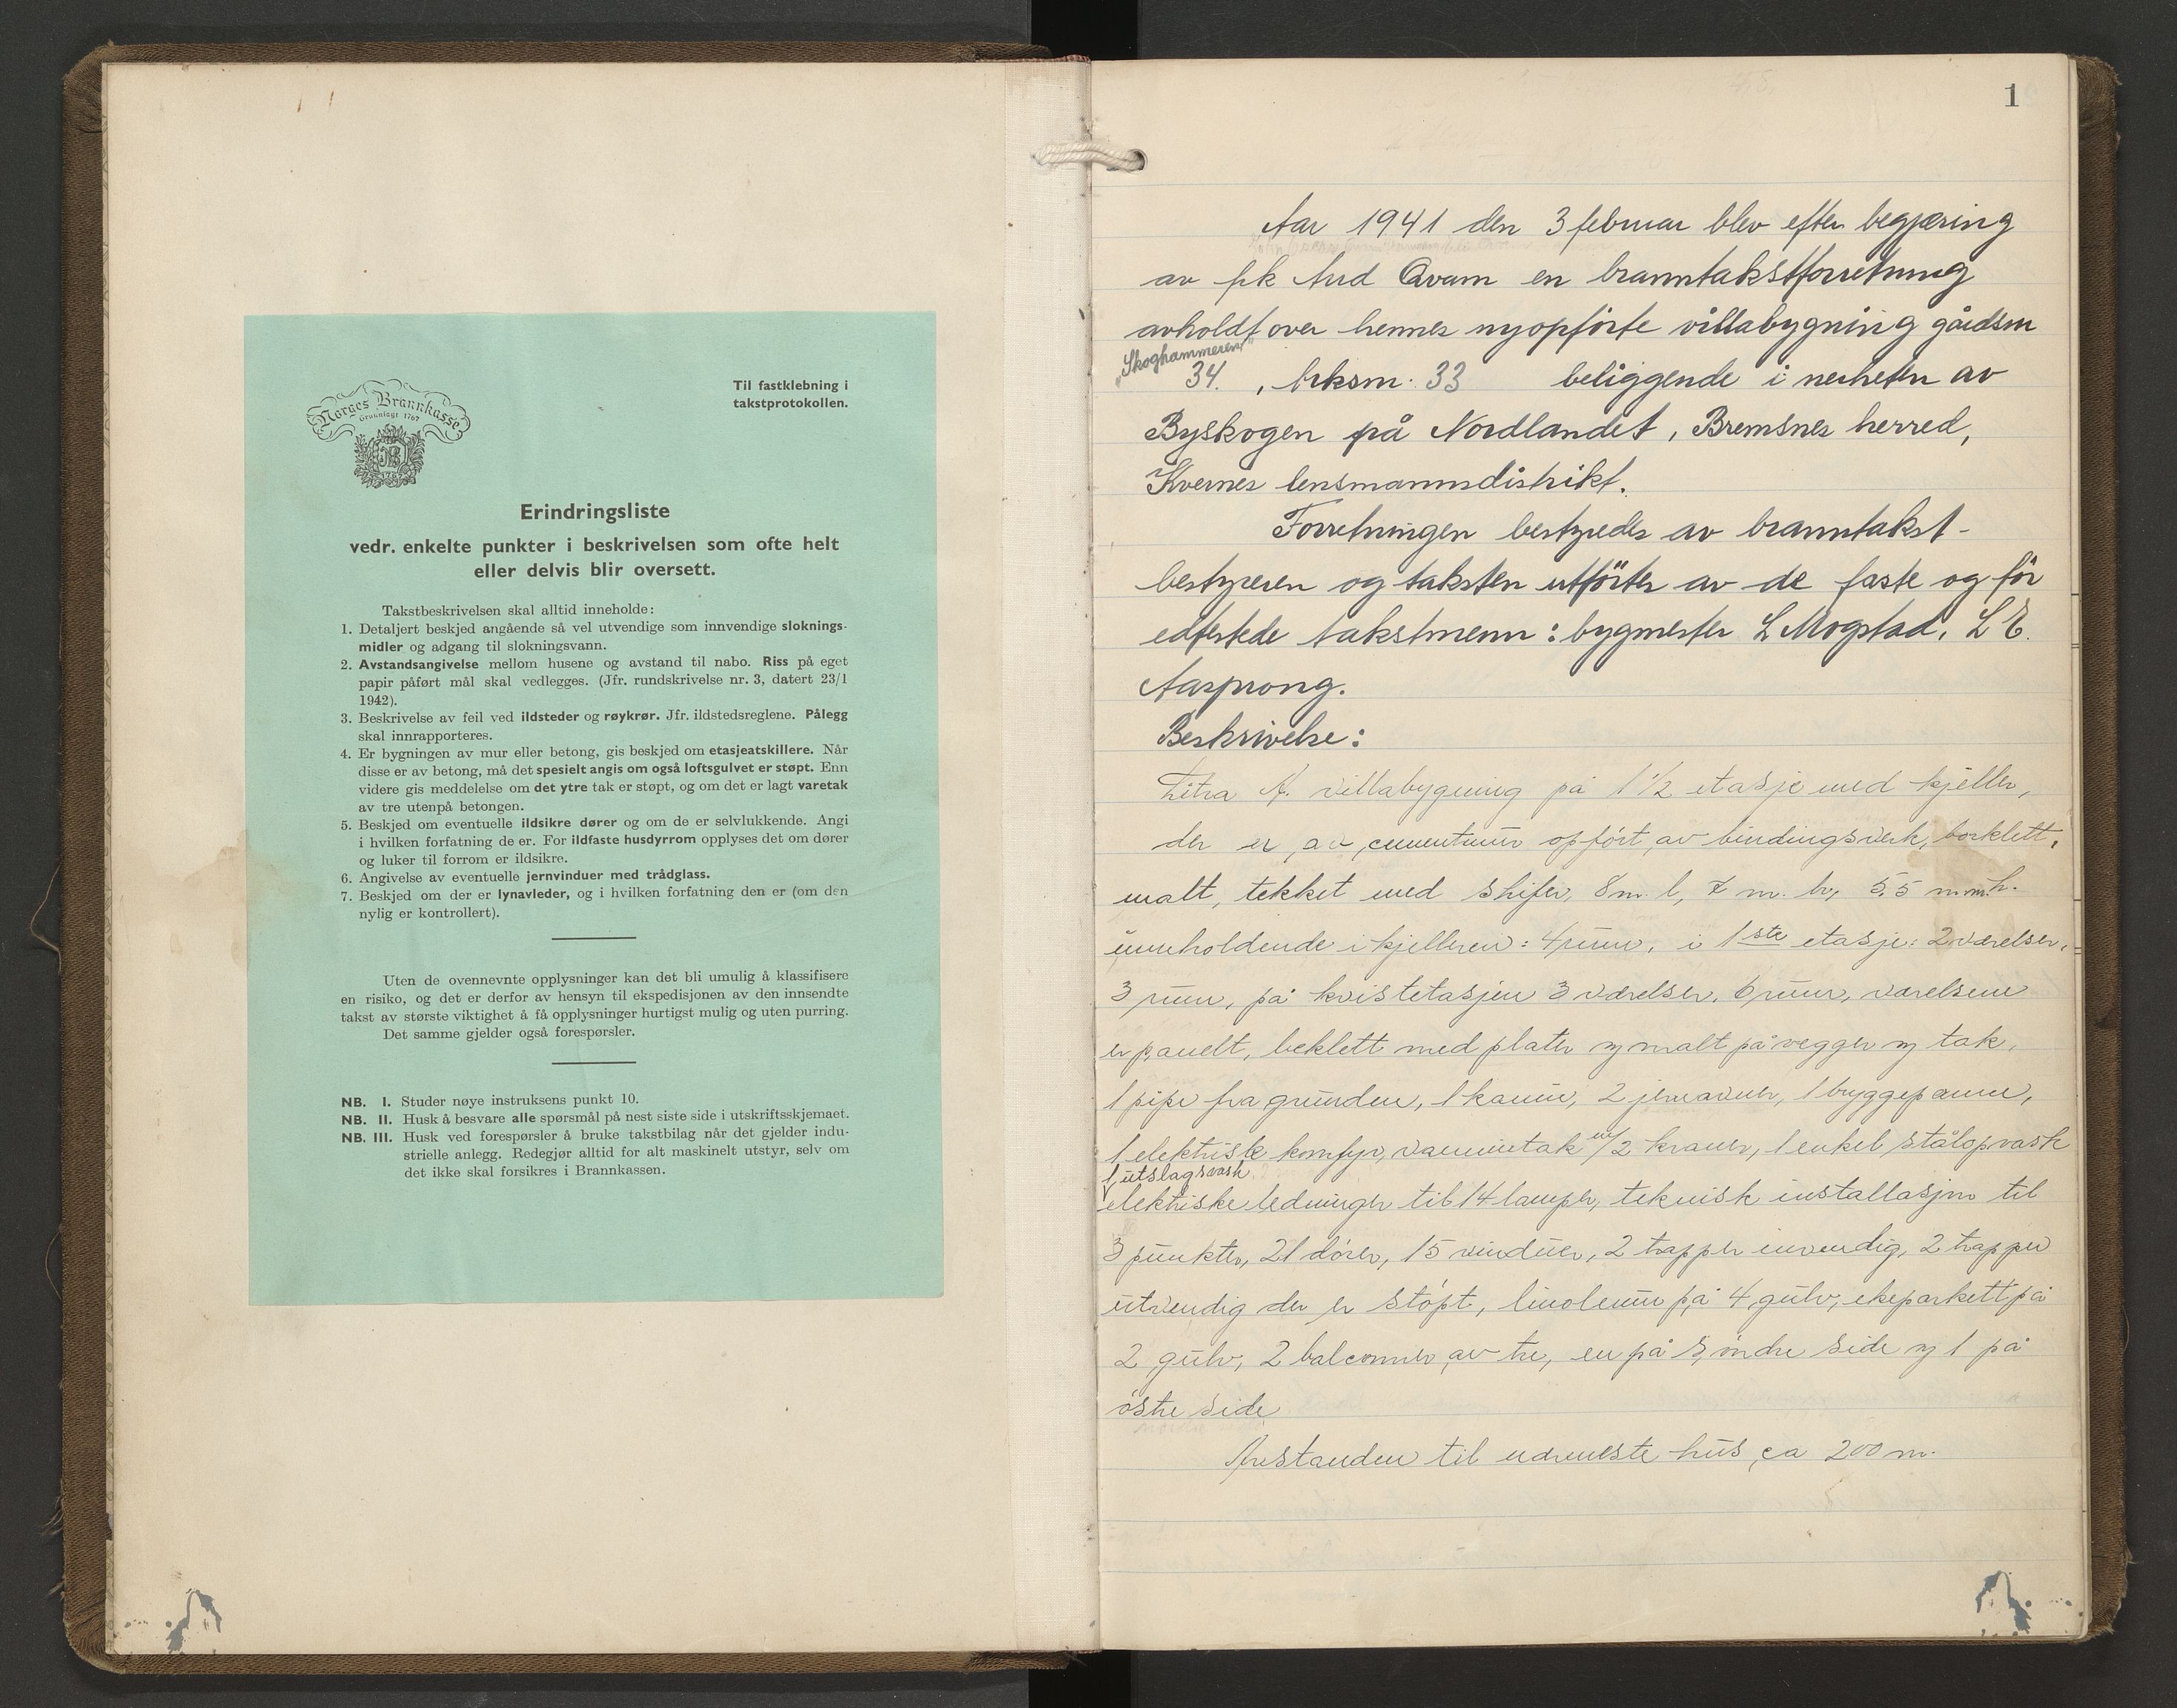 Til fastklebning i
takstprotokollen.
Norges Brannkasse
Grunnlagt 1767
Erindringsliste
vedr. enkelte punkter i beskrivelsen som ofte helt
eller delvis blir oversett.
Takstbeskrivelsen skal alltid inneholde:
1. Detaljert beskjed angående så vel utvendige som innvendige sloknings-
midler og adgang til slokningsvann.
2. Avstandsangivelse mellom husene og avstand til nabo. Riss på eget
papir påført mål skal vedlegges. (Jfr. rundskrivelse nr. 3, datert 23/1
1942).
3. Beskrivelse av feil ved ildsteder og røykrør. Jfr. ildstedsreglene. Pålegg
skal innrapporteres.
4. Er bygningen av mur eller betong, gis beskjed om etasjeatskillere. Når
disse er av betong, må det spesielt angis om også loftsgulvet er støpt. Enn
videre gis meddelelse om det ytre tak er støpt, og om det er lagt varetak
av tre utenpå betongen.
5. Beskjed om eventuelle ildsikre dører og om de er selvlukkende. Angi
i hvilken forfatning de er. For ildfaste husdyrrom opplyses det om dører
og luker til forrom er ildsikre.
6. Angivelse av eventuelle jernvinduer med trådglass.
7. Beskjed om der er lynavleder, og i hvilken forfatning den er (om den
nylig er kontrollert).
Uten de ovennevnte opplysninger kan det bli umulig å klassifisere
en risiko, og det er derfor av hensyn til ekspedisjonen av den innsendte
takst av største viktighet å få opplysninger hurtigst mulig og uten purring.
Det samme gjelder også forespørsler.
NB. I. Studer nøye instruksens punkt 10.
NB. II. Husk å besvare alle spørsmål på nest siste side i utskriftsskjemaet.
NB. III. Husk ved forespørsler å bruke takstbilag når det gjelder indu-
strielle anlegg. Redegjør alltid for alt maskinelt utstyr, selv om
det ikke skal forsikres i Brannkassen.
1
Aar 1941 den 3 februar blev efter begjæring
av frk Aud Qvam en branntakstforretning
avholdt over hennes nyopförte villabygning gårdsnr
"Skoghammeren"
34. , brksnr. 33 beliggende i nerheten av
Byskogen på Nordlandet, Bremsnes herred,
Kvernes lensmannsdistrikt.
Forretningen bestyredes av branntakst-
bestyreren og taksten utförtes av de faste og för
edfestede takstmenn: bygmester L Mogstad, L E.
Aasprong.
Beskrivelse:
Litra A. villabygning på 1 1/2 etasje med kjeller,
der er av cementmur opfört av bindingsverk, borklett,
malt, tekket med skifer, 8 m. l, 7 m. br, 5,5 m.m.h.
innholdende i kjelleren: 4 rum, i 1ste etasje: 2 værelser,
3 rum, på kvistetasjen 3 værelser, 6 rum, værelsene
er panelt, beklett med plater og malt på vegger og tak,
1 pipe fra grunden, 1 kamin, 2 jernovner, 1 bryggepanne,
1 elektrisk komfyr, vanninntak m/2 kraner, 1 enkel stålopvask
1 utslagsvask
elektriske ledninger til 14 lamper, teknisk installasjon til
3 punkter, 21 dörer, 15 vinduer, 2 trapper invendig, 2 trapper
utvendig der er stöpt, linoleum på 4 gulv, ekeparkett på
2 gulv, 2 balconner av tre, en på söndre side og 1 på
östre side
Avstanden til nærmeste hus ca 200 m.